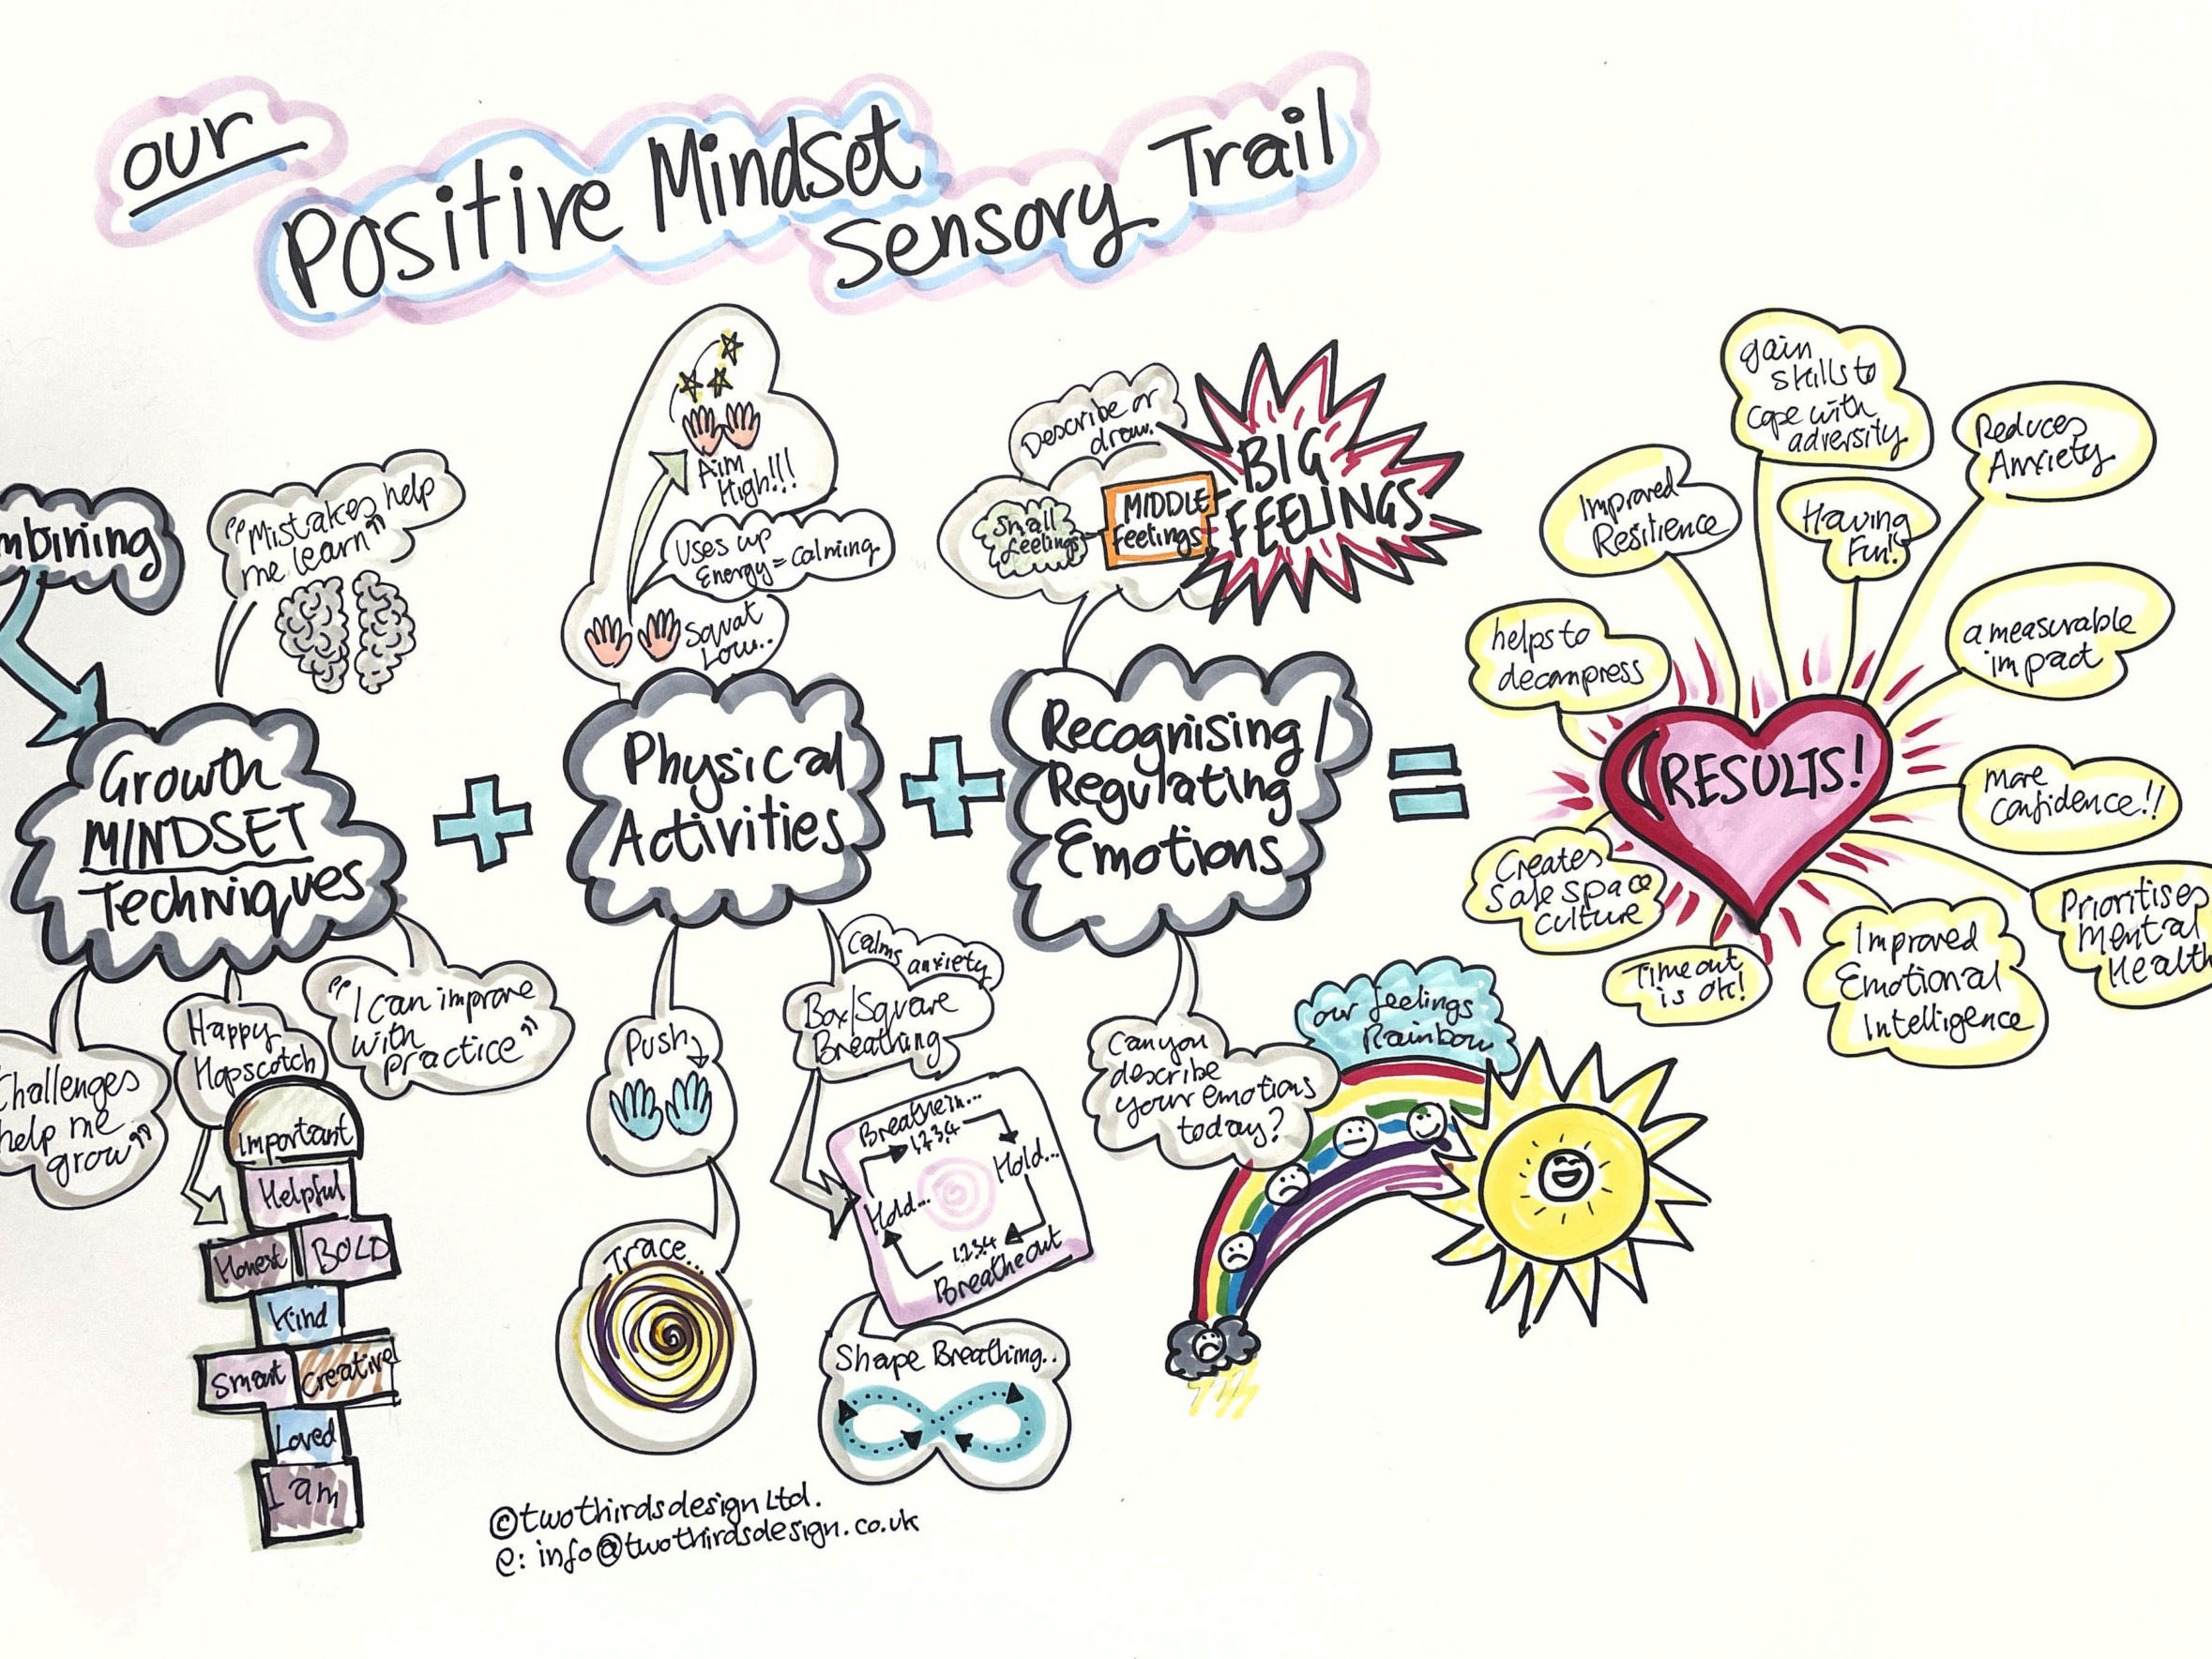 our
Positive Mindset
Sensory Trail
mbining
"Mistakes help
me learn"
Growth
MINDSET
Techniques
Challenges
help me
grow"
Happy
Hopscotch
"I can improve
with
practice"
Important
Helpful
Honest BOLD
Kind
Smart Creative
Loved
I am
+
Aim
High!!!
Uses up
Energy = calming
Squat
Low..
Physical
Activities
Push
Trace...
Calms
anxiety
Box/Square
Breathing
Breathe in...
1,2,3,4
Hold...
Hold...
1,2,3,4
Breathe out
Shape Breathing..
+
Describe or
draw.
Small
feelings
MIDDLE
feelings
BIG
FEELINGS
Recognising/
Regulating
Emotions
Can you
describe
your emotions
today?
our feelings
Rainbow
=
RESULTS!
helps to
decompress
Improved
Resilience
gain
skills to
cope with
adversity
Having
Fun!
Reduces
Anxiety
a measurable
impact
more
confidence!!
Prioritises
Mental
Health
Improved
Emotional
Intelligence
Time out
is ok!
Creates
Safe space
culture
©twothirdsdesign Ltd.
e: info@twothirdsdesign.co.uk